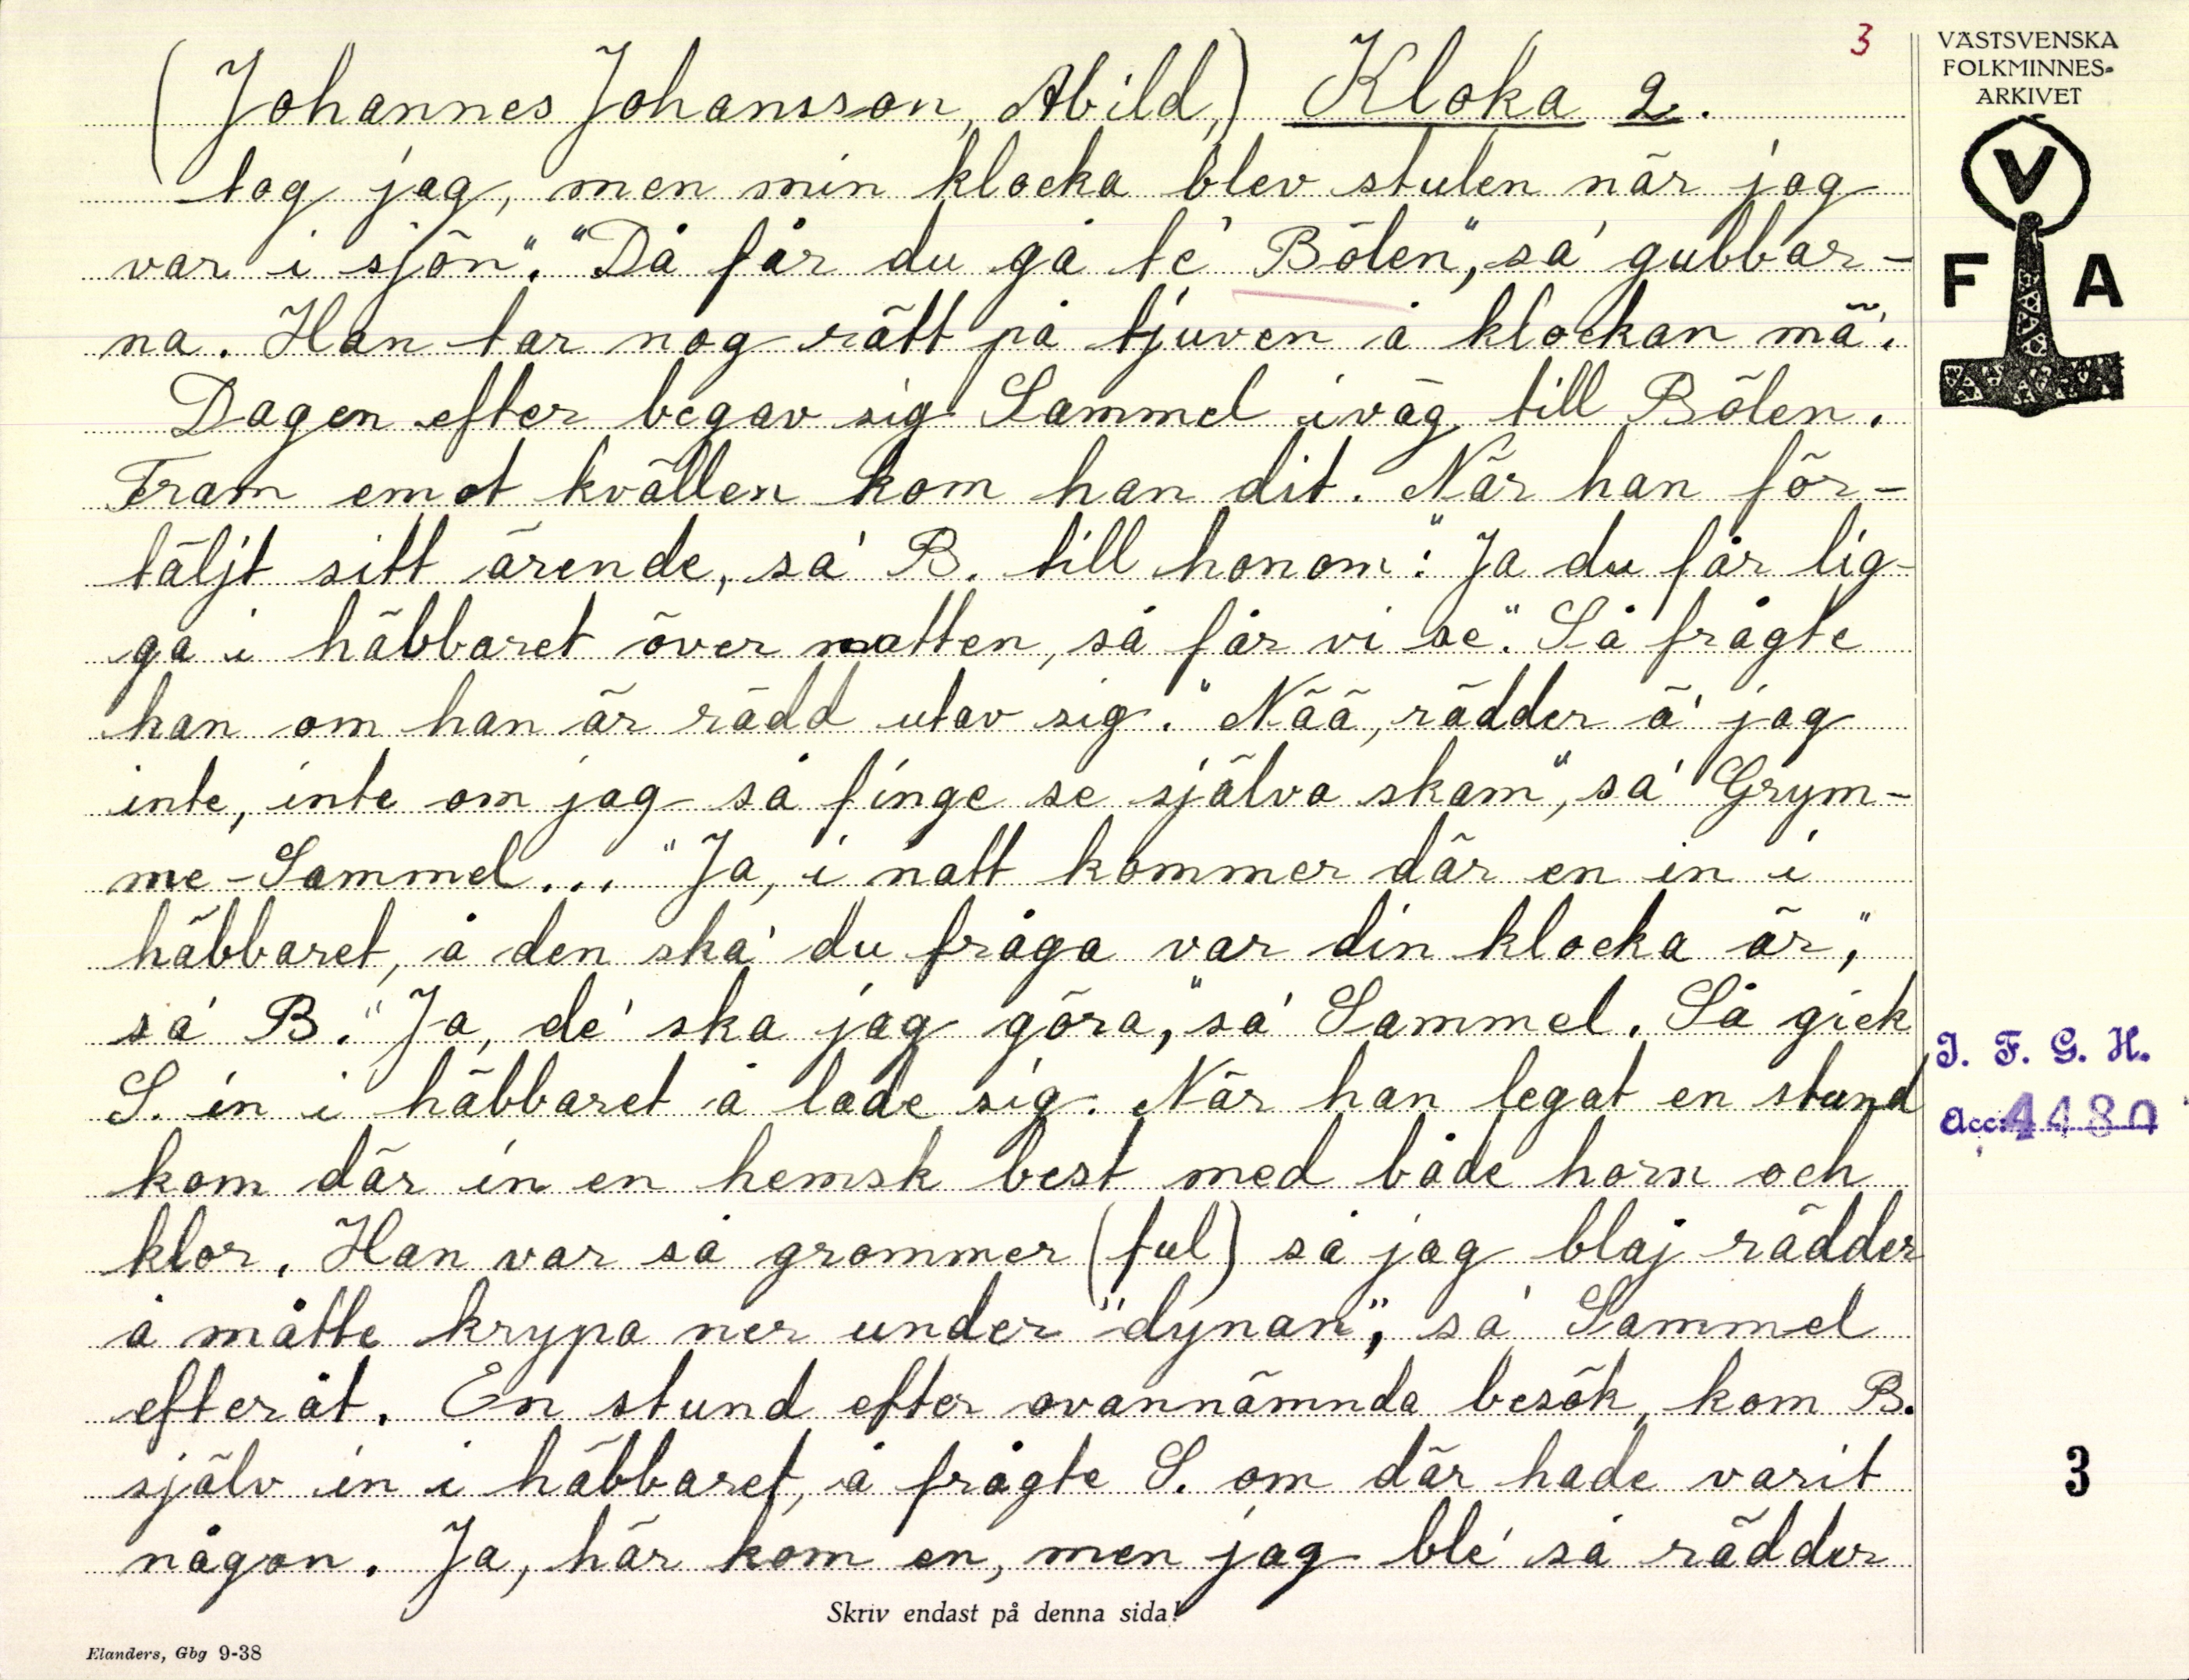 3
VÄSTSVENSKA
FOLKMINNES-
ARKIVET
V
F A
(Johannes Johansson, Abild,) Kloka 2.
tog jag, men min klocka blev stulen när jag
var i sjön". "Då får du gå te' Bölen", sa' gubbar-
na. Han tar nog rätt på tjuven å klockan mä'.
Dagen efter begav sig Sammel iväg till Bölen.
Fram emot kvällen kom han dit. När han för-
täljt sitt ärende, sa' B. till honom: "Ja du får lig-
ga i häbbaret över natten, så får vi se". Så frågte
han om han är rädd utav sig. "Nää, rädder ä' jag
inte, inte om jag så finge se själva skam", sa' Grym-
me-Sammel... "Ja, i natt kommer där en in i
häbbaret, å den ska' du fråga var din klocka är,"
sa' B. "Ja, de' ska jag göra," sa' Sammel. Så gick
S. in i häbbaret å lade sig. När han legat en stund
kom där in en hemsk best med både horn och
klor. Han var så grommer (ful) så jag blaj rädder
å måtte krypa ner under "dynan", sa' Sammel
efteråt. En stund efter ovannämnda besök, kom B.
själv in i häbbaret, å frågte S. om där hade varit
någon. Ja, här kom en, men jag ble' så rädder
I. F. G. H.
Acc: 4480
3
Skriv endast på denna sida!
Elanders, Gbg 9-38